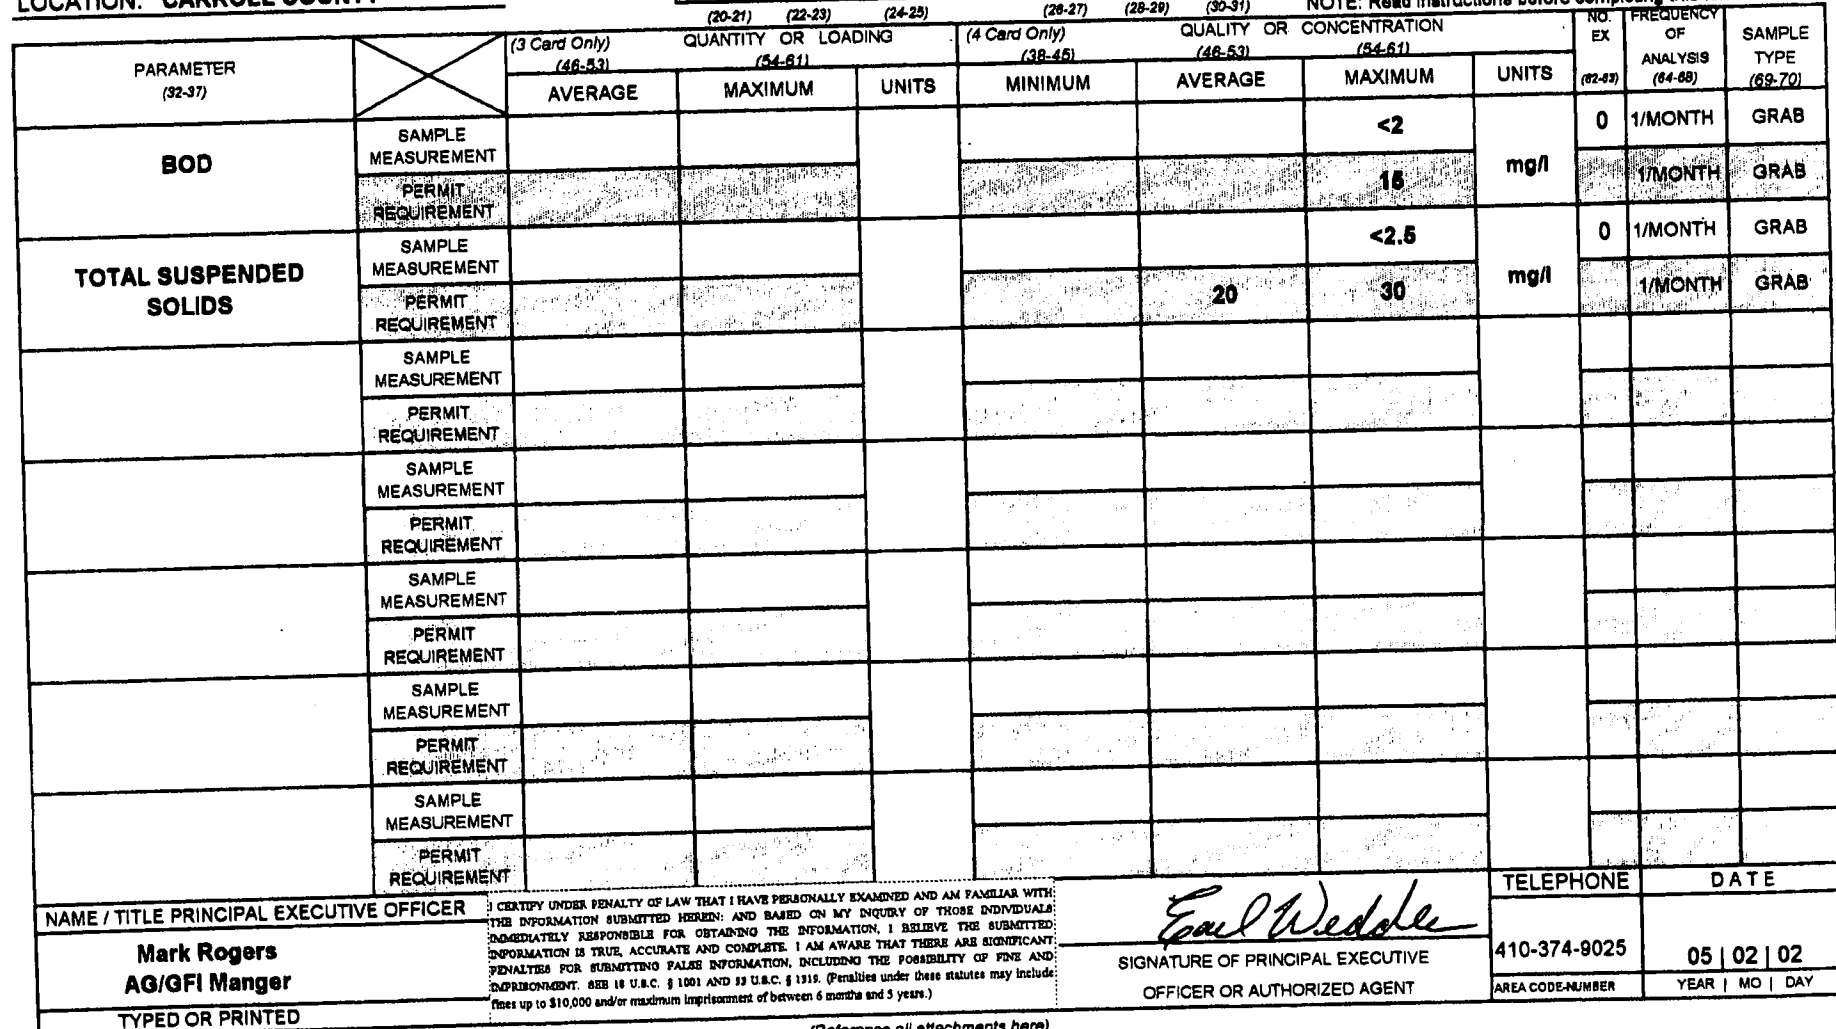 LOCATION: CARROLL COUNTY
(20-21) (22-23) (24-25) (26-27) (28-29) (30-31) NOTE: Read instructions before completing this
PARAMETER
(32-37)
(3 Card Only) QUANTITY OR LOADING
(46-53) (54-61)
AVERAGE MAXIMUM UNITS
(4 Card Only) QUALITY OR CONCENTRATION
(38-45) (46-53) (54-61)
MINIMUM AVERAGE MAXIMUM UNITS
NO.
EX
(62-63)
FREQUENCY
OF
ANALYSIS
(64-68)
SAMPLE
TYPE
(69-70)
BOD
SAMPLE
MEASUREMENT
<2 0 1/MONTH GRAB
mg/l
PERMIT
REQUIREMENT
15 1/MONTH GRAB
TOTAL SUSPENDED
SOLIDS
SAMPLE
MEASUREMENT
<2.5 0 1/MONTH GRAB
mg/l
PERMIT
REQUIREMENT
20 30 1/MONTH GRAB
SAMPLE
MEASUREMENT
PERMIT
REQUIREMENT
SAMPLE
MEASUREMENT
PERMIT
REQUIREMENT
SAMPLE
MEASUREMENT
PERMIT
REQUIREMENT
SAMPLE
MEASUREMENT
PERMIT
REQUIREMENT
SAMPLE
MEASUREMENT
PERMIT
REQUIREMENT
NAME / TITLE PRINCIPAL EXECUTIVE OFFICER
Mark Rogers
AG/GFI Manger
TYPED OR PRINTED
I CERTIFY UNDER PENALTY OF LAW THAT I HAVE PERSONALLY EXAMINED AND AM FAMILIAR WITH
THE INFORMATION SUBMITTED HEREIN: AND BASED ON MY INQUIRY OF THOSE INDIVIDUALS
IMMEDIATELY RESPONSIBLE FOR OBTAINING THE INFORMATION, I BELIEVE THE SUBMITTED
INFORMATION IS TRUE, ACCURATE AND COMPLETE. I AM AWARE THAT THERE ARE SIGNIFICANT
PENALTIES FOR SUBMITTING FALSE INFORMATION, INCLUDING THE POSSIBILITY OF FINE AND
IMPRISONMENT. SEE 18 U.S.C. § 1001 AND 33 U.S.C. § 1319. (Penalties under these statutes may include
fines up to $10,000 and/or maximum imprisonment of between 6 months and 5 years.)
Earl Weddle
SIGNATURE OF PRINCIPAL EXECUTIVE
OFFICER OR AUTHORIZED AGENT
TELEPHONE
410-374-9025
AREA CODE-NUMBER
DATE
05 | 02 | 02
YEAR | MO | DAY
(Reference all attachments here)